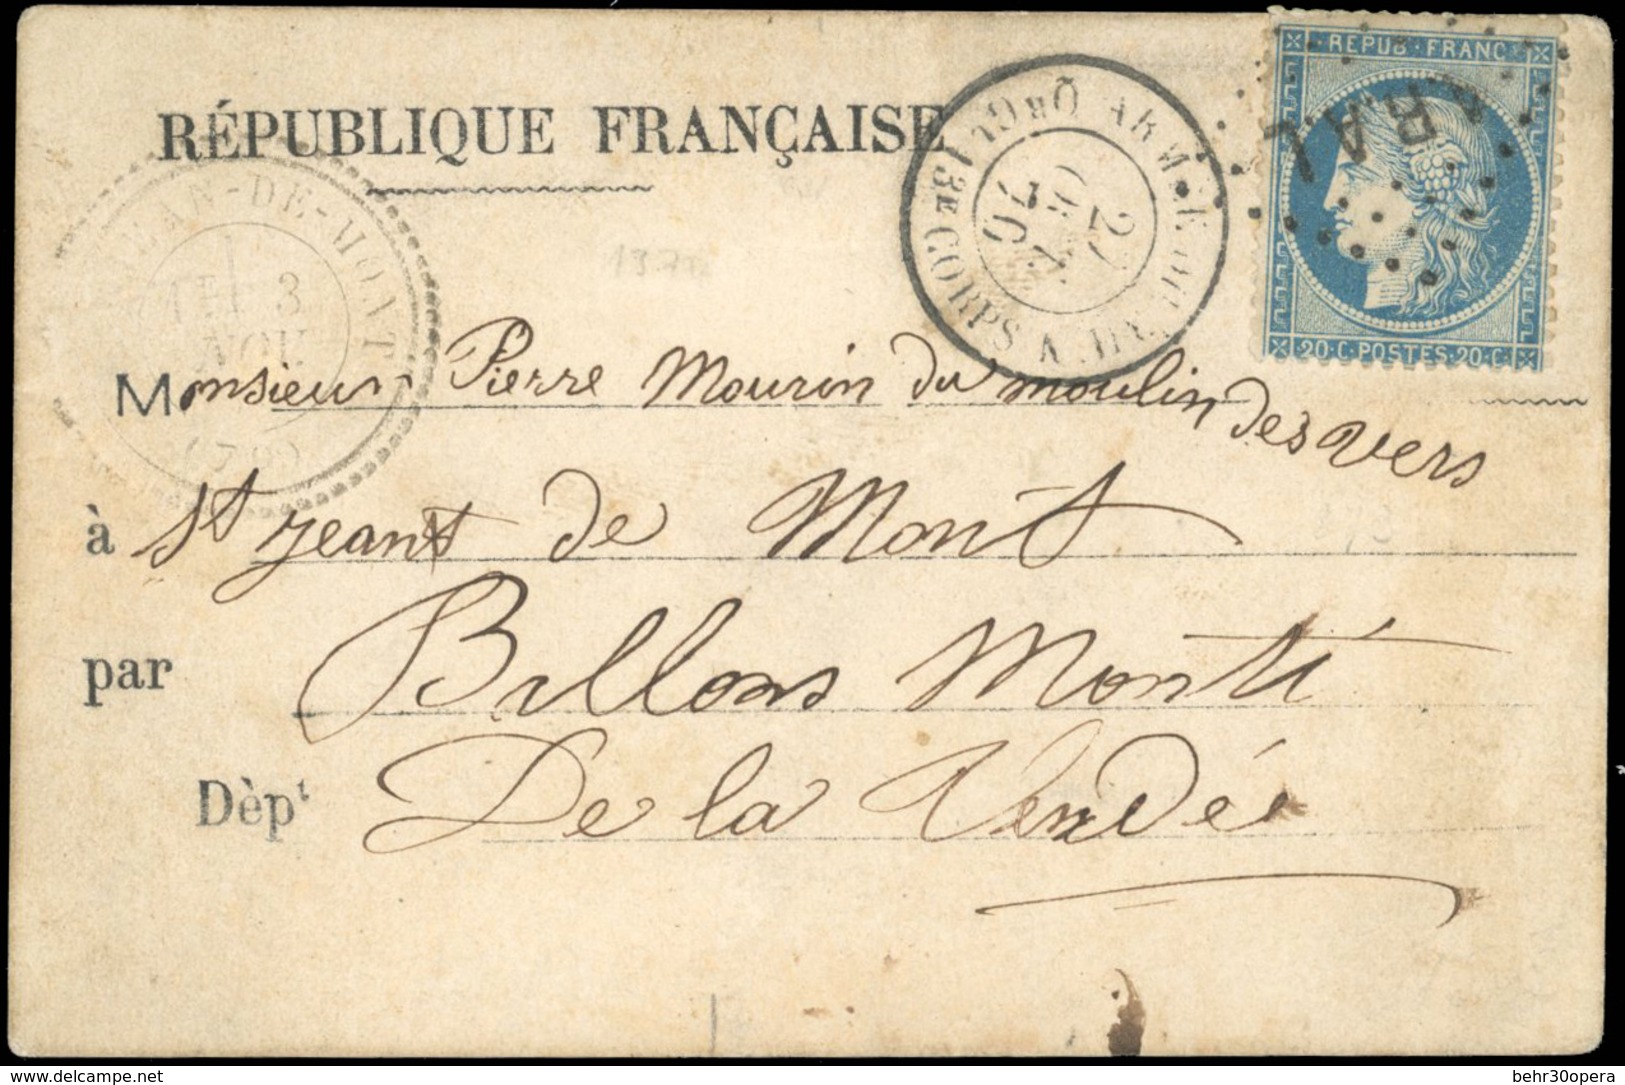 RÉPUBLIQUE FRANÇAISE
REPUB·FRANC
20·C·POSTES·20·C·
ARMÉE DU
13E CORPS
27
OCT
70
JEAN-DE-MONT
3
NOV
Monsieur Pierre Mourin du moulin des vers
à St jeant de Mont
par Billons Monti
Dèpt De la Vendée
behr30opera